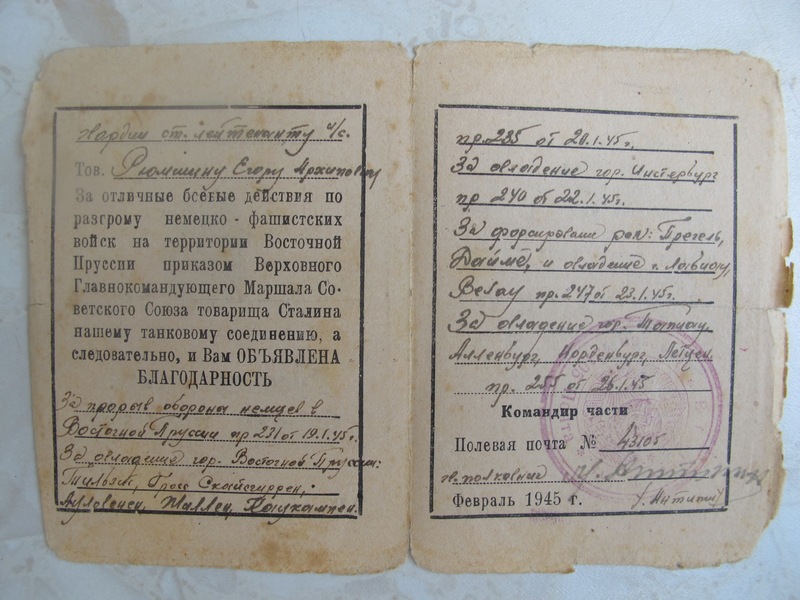 Гвардии ст. лейтенанту и/с.
Тов. Рюмшину Егору Архиповичу
За отличные боевые действия по
разгрому немецко-фашистских
войск на территории Восточной
Пруссии приказом Верховного
Главнокомандующего Маршала Со-
ветского Союза товарища Сталина
нашему танковому соединению, а
следовательно, и Вам ОБЪЯВЛЕНА
БЛАГОДАРНОСТЬ
За прорыв обороны немцев в
Восточной Пруссии пр 231 от 19.1.45г.
За овладение гор. Восточной Пруссии:
Тильзит, Гросс Скайсгиррен,
Ауловенен, Жиллен, Каукемен.
пр. 235 от 20.1.45г,
За овладение гор. Инстербург
пр 240 от 22.1.45г.
За форсирование рек: Прегель,
Дайме, и овладение г. Лабиау,
Велау пр. 247 от 23.1.45г.
За овладение гор. Тапиау,
Алленбург, Норденбург, Летцен.
пр. 255 от 26.1.45
Командир части
Полевая почта № 43105
гв. полковник
Февраль 1945 г.